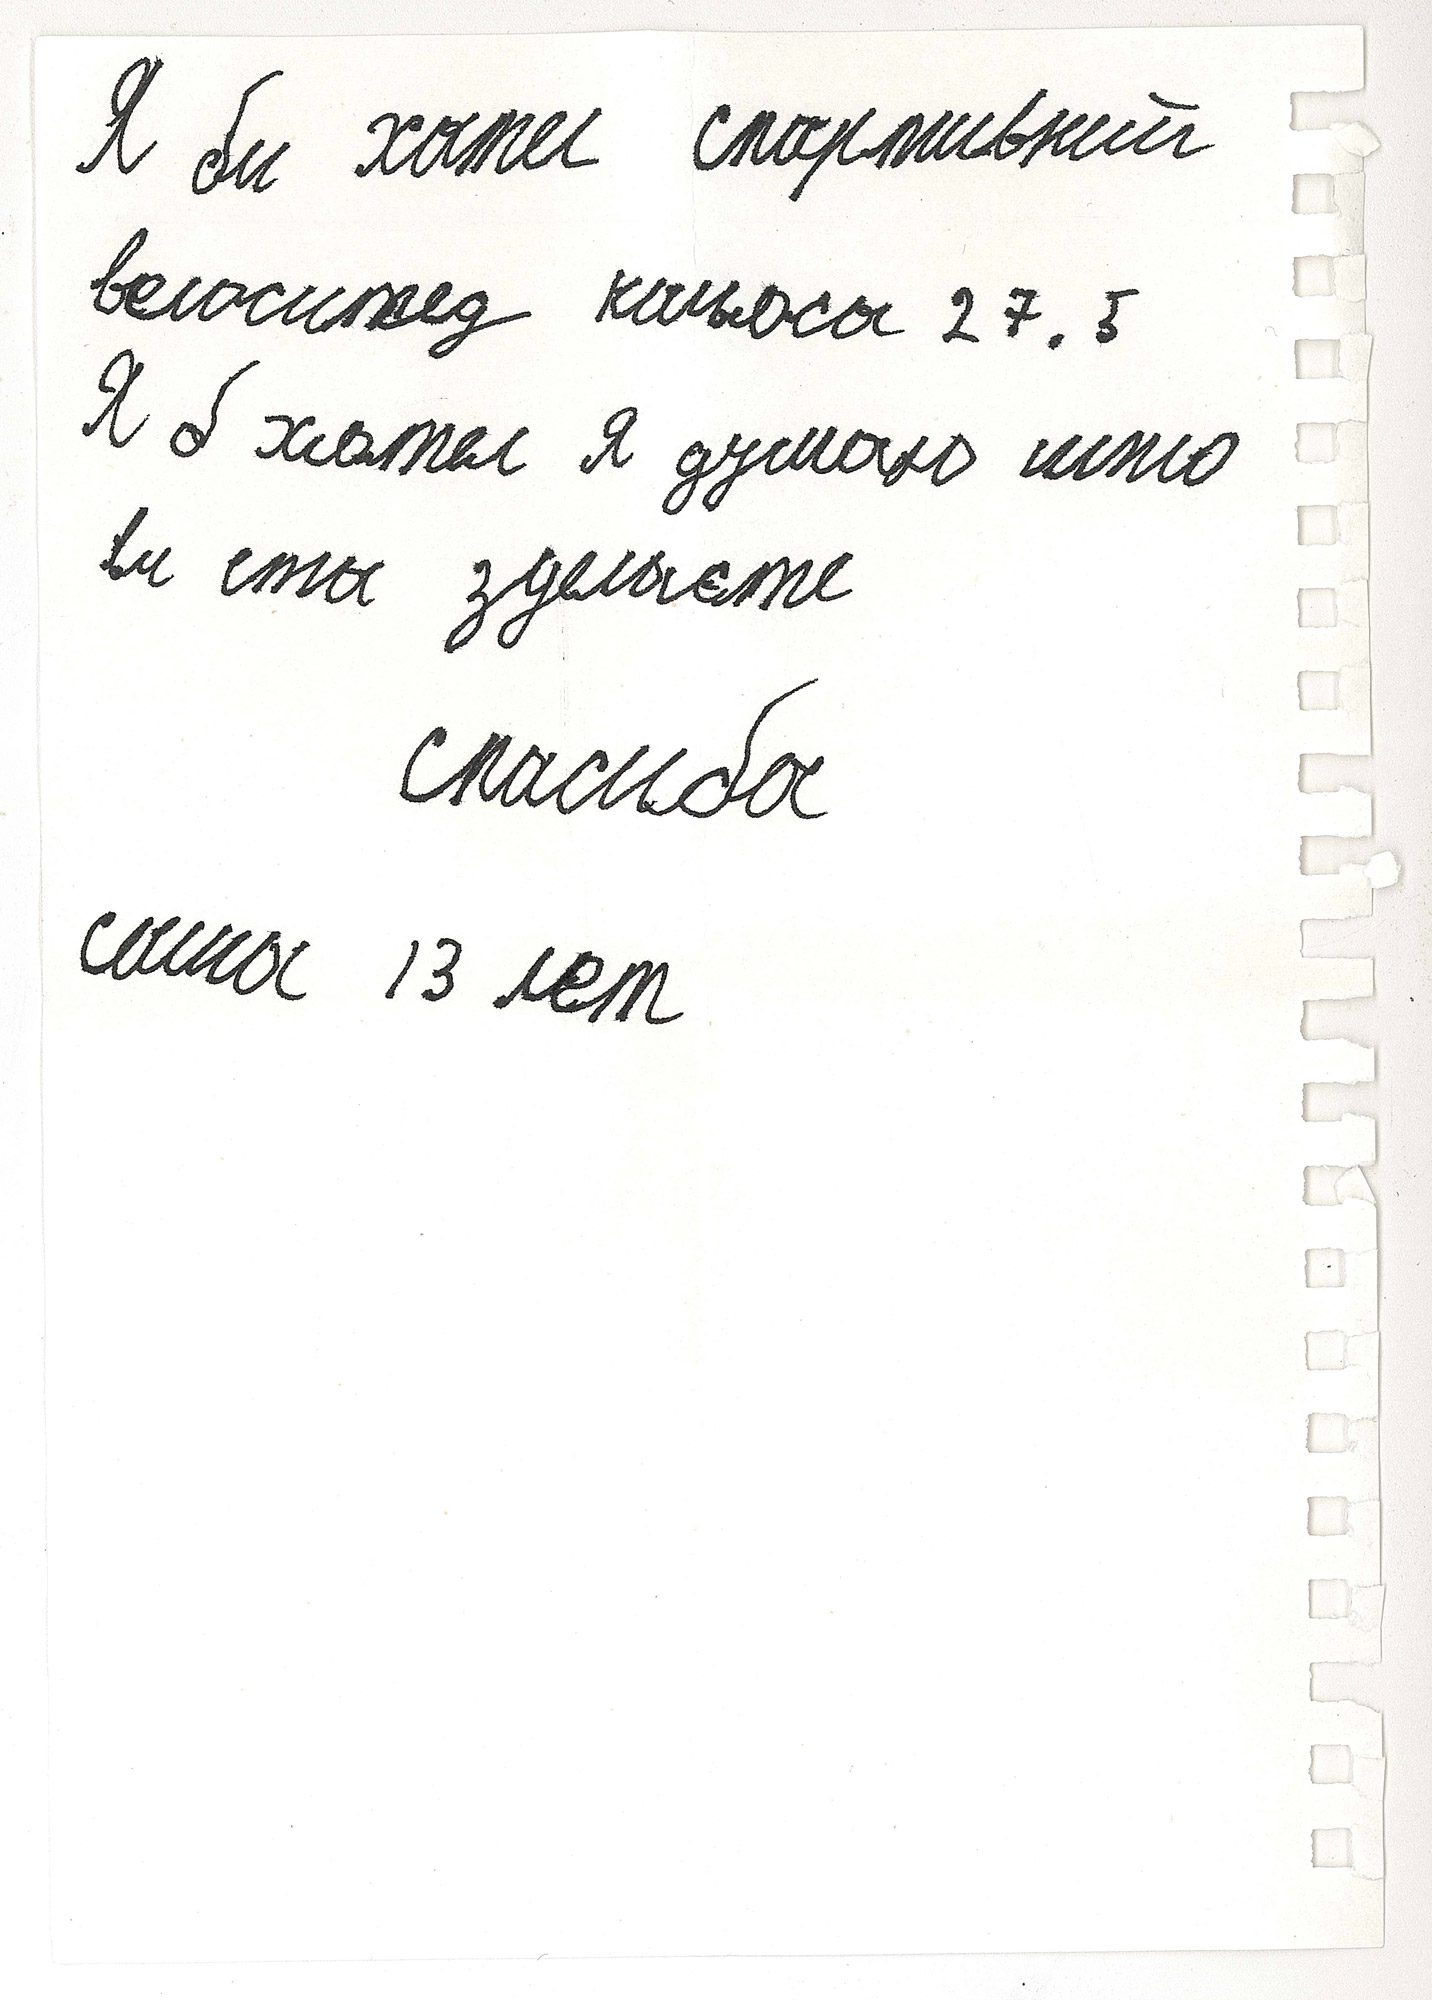 Я би хател спартивний
веласипед кальоса 27.5
Я б хател я думаю што
ви ета зделаєте
спасиба
саша 13 лет